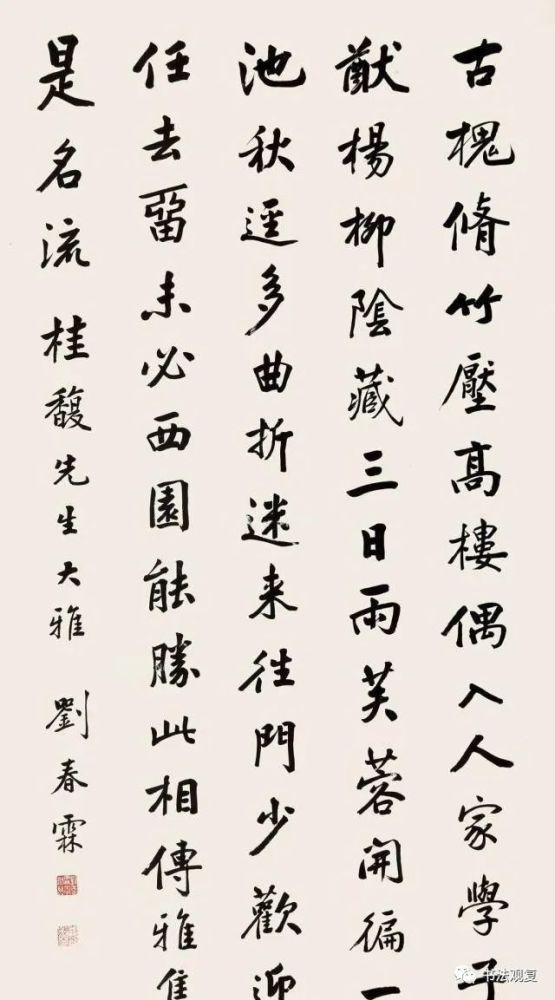 古槐脩竹壓高樓偶入人家學
猷楊柳陰藏三日雨芙蓉開徧一
池秋逕多曲折迷来往門少歡迎
任去留未必西園能勝此相傳雅集
是名流 桂馥先生大雅 劉春霖
书法观复